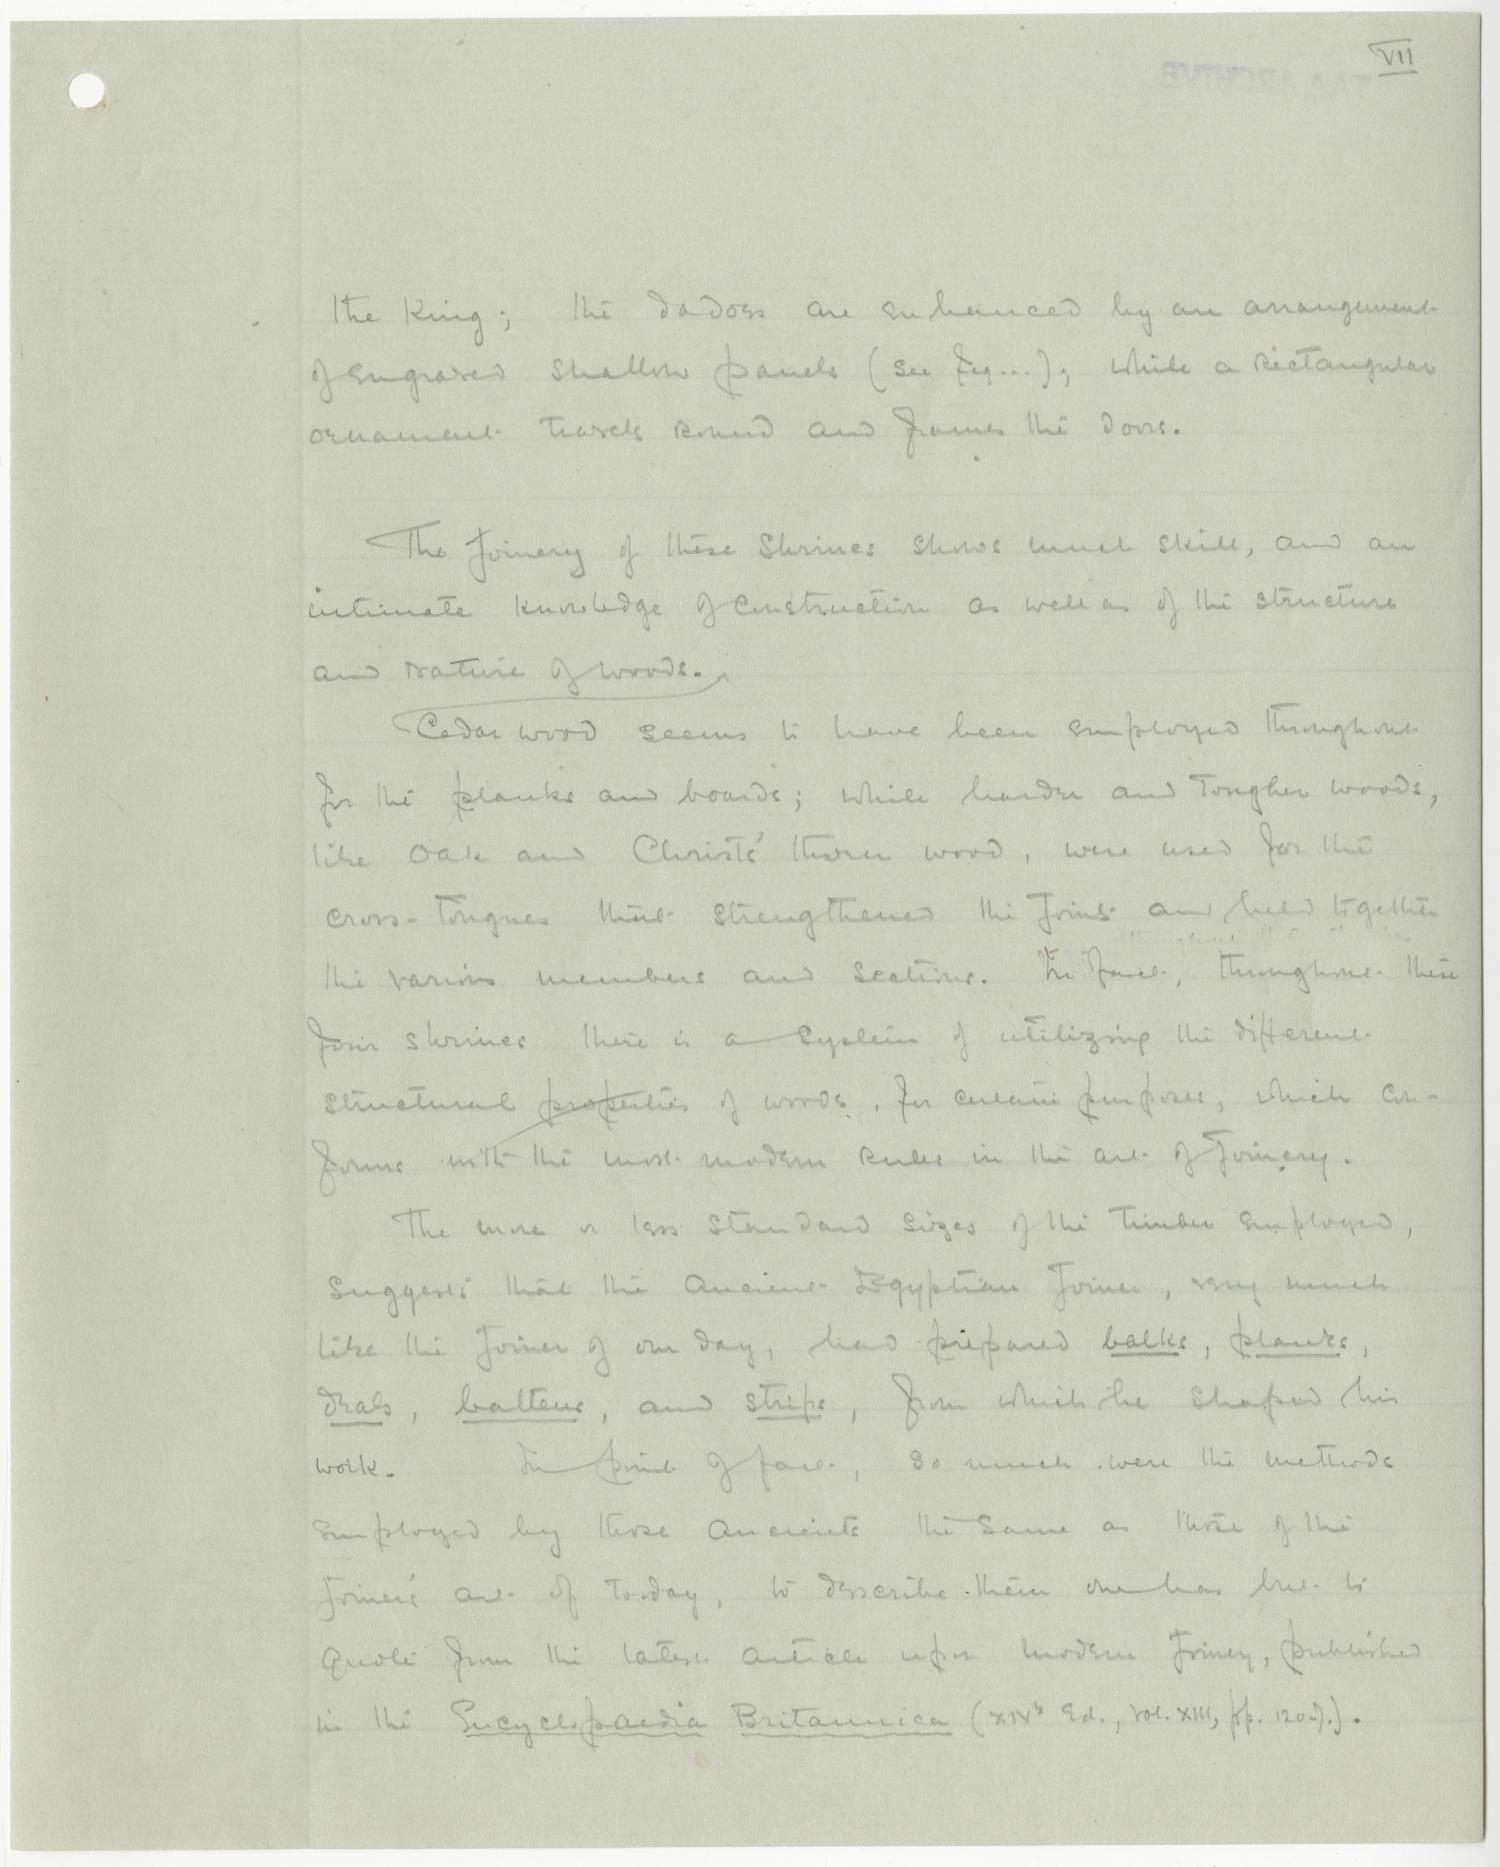 VII
the King; the dadoes are enhanced by an arrangement
of engraved shallow panels (see fig...); while a rectangular
ornament travels round and frames the doors.
The Joinery of these Shrines shows much skill, and an
intimate knowledge of construction as well as of the structure
and nature of woods.
Cedar wood seems to have been employed throughout
for the planks and boards; while harder and tougher woods,
like oak and Christs' thorn wood, were used for the
cross-tongues that strengthened the joints and held together
the various members and sections. In fact, throughout these
four shrines there is a system of utilizing the different
structural properties of woods, for certain purposes, which con-
forms with the most modern rules in the art of Joinery.
The more or less standard sizes of the timber employed,
suggests that the Ancient Egyptian Joiner, very much
like the Joiner of our day, had prepared balks, planks,
deals, battens, and strips, from which he shaped his
work. In point of fact, so much were the methods
employed by those Ancients the same as those of the
Joiner's art of To-day, to describe them one has but to
quote from the latest article upon modern Joinery, published
in the Encyclopaedia Britannica (XIVth Ed., Vol. XIII, pp.